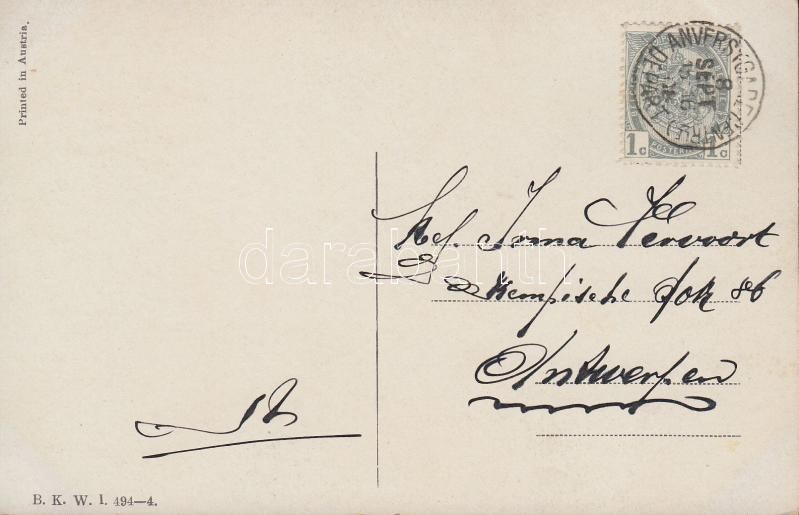 Printed in Austria.
ANVERS (GARE CENTRALE)
8
SEPT
(DEPART)
1c POSTERIJEN 1c
Mej. Irma Vervoort
Kempische dok 86
Antwerpen
darabanth
B. K. W. I. 494—4.